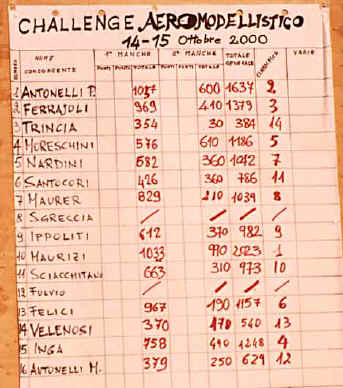 CHALLENGE AEROMODELLISTICO
14-15 Ottobre 2000
NUMERO NOME CONCORRENTE 1ª MANCHE PUNTI PUNTI TOTALE 2ª MANCHE PUNTI PUNTI TOTALE TOTALE GENERALE CLASSIFICA VARIE
1 ANTONELLI P. 1037 600 1637 2
2 FERRAJOLI 969 410 1379 3
3 TRINCIA 354 30 384 14
4 MORESCHINI 576 610 1186 5
5 NARDINI 682 360 1042 7
6 SANTOCORI 426 360 786 11
7 MAURER 829 210 1039 8
8 SGRECCIA / / / /
9 IPPOLITI 612 370 982 9
10 MAURIZI 1033 990 2023 1
11 SCIACCHITANO 663 310 973 10
12 FULVIO / / / /
13 FELICI 967 190 1157 6
14 VELENOSI 370 170 540 13
15 INGA 758 490 1248 4
16 ANTONELLI M. 379 250 629 12